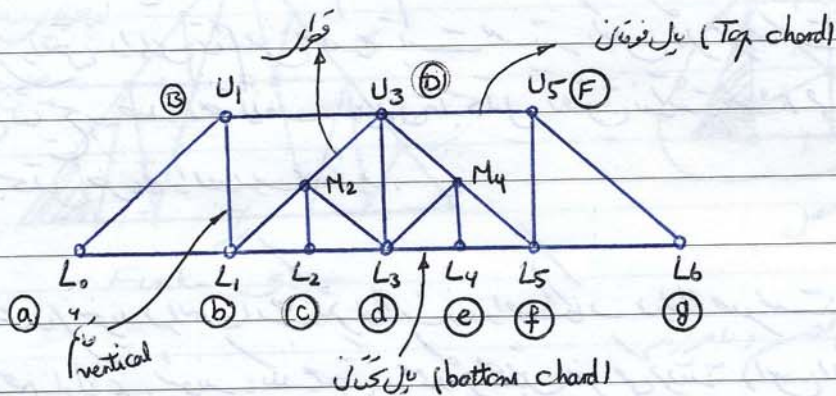 قطری
یال فوقانی (Top chord)
B U1 U3 D U5 F
M2 M4
L0 L1 L2 L3 L4 L5 L6
a b c d e f g
vertical
یال تحتانی (bottom chord)